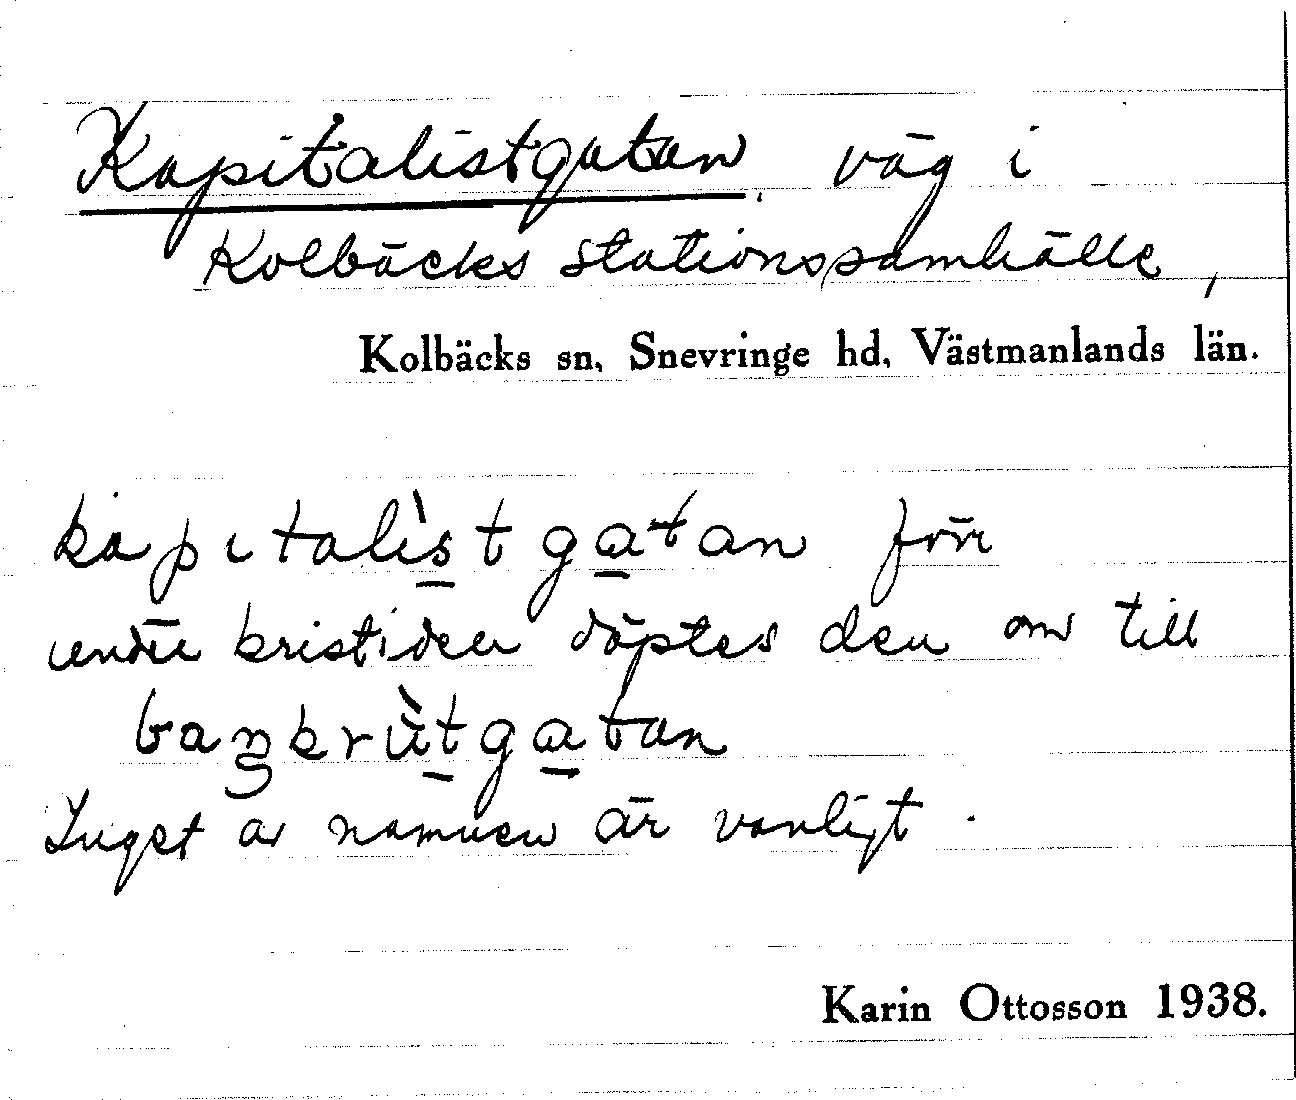 Kapitalistgatan, väg i
Kolbäcks stationssamhälle,
Kolbäcks sn, Snevringe hd, Västmanlands län.
kapɩtalìs̠tga̠tan förr
under kristiden döptes den om till
baŋkrùt̠ga̠tan
Inget av namnen är vanligt.
Karin Ottosson 1938.